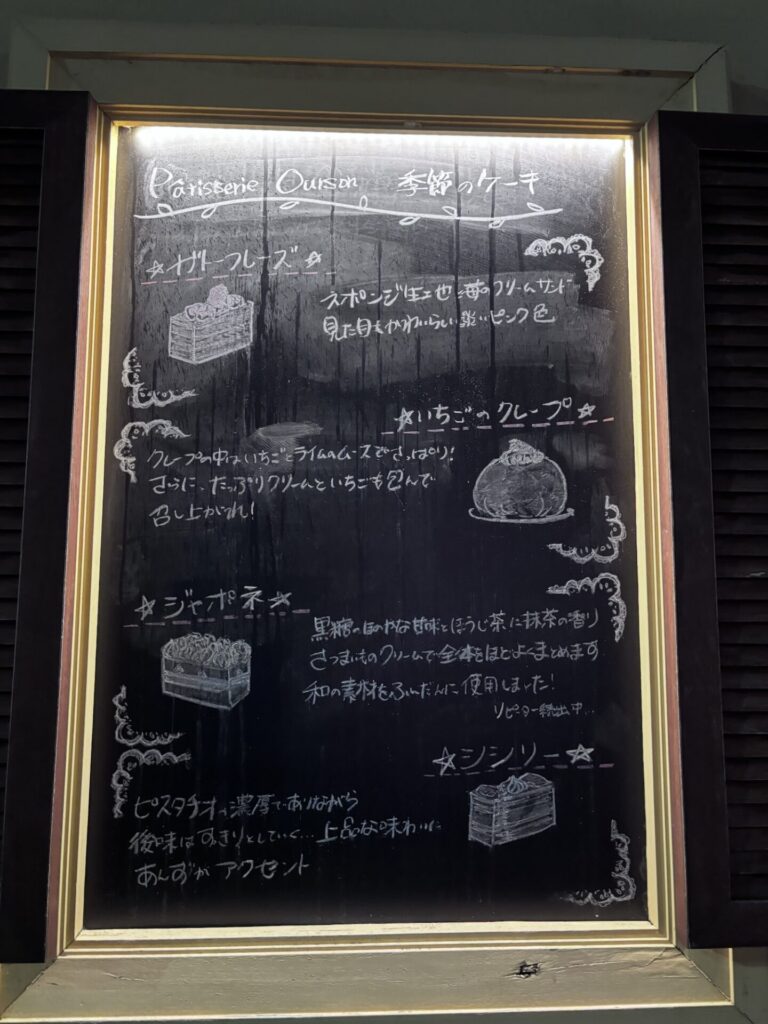 Patisserie Ourson 季節のケーキ
☆ガトーフレーズ☆
スポンジ生地に苺のクリームサンド
見た目もかわいらしい淡いピンク色
☆いちごのクレープ☆
クレープの中はいちごとライムのムースでさっぱり!
さらに、たっぷりクリームといちごも包んで
召し上がれ!
☆ジャポネ☆
黒糖のほのやかな甘味とほうじ茶に抹茶の香り
さつまいものクリームで全体をほどよくまとめます
和の素材をふんだんに使用しました!
リピーター続出中…
☆シシリー☆
ピスタチオの濃厚でありながら
後味はすっきりとしていく…上品な味わいに
あんずがアクセント